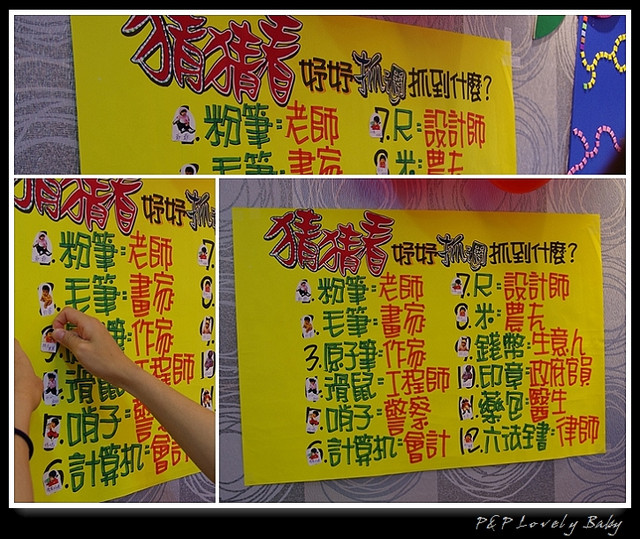 猜猜看 妤妤抓週抓到什麼?
粉筆:老師
毛筆:書家
7.尺:設計師
8.米:農夫
猜猜看 妤妤抓
粉筆:老師
毛筆:畫家
筆:作家
滑鼠:工程師
哨子:警
6.計算机:會計
7.
猜猜看 妤妤抓週抓到什麼?
1.粉筆:老師
毛筆:畫家
3.原子筆:作家
滑鼠:工程師
哨子:警察
6.計算机:會計
7.尺:設計師
8.米:農夫
錢幣:生意人
10.印章:政府官員
藥包:醫生
12.六法全書:律師
P&P Lovely Baby